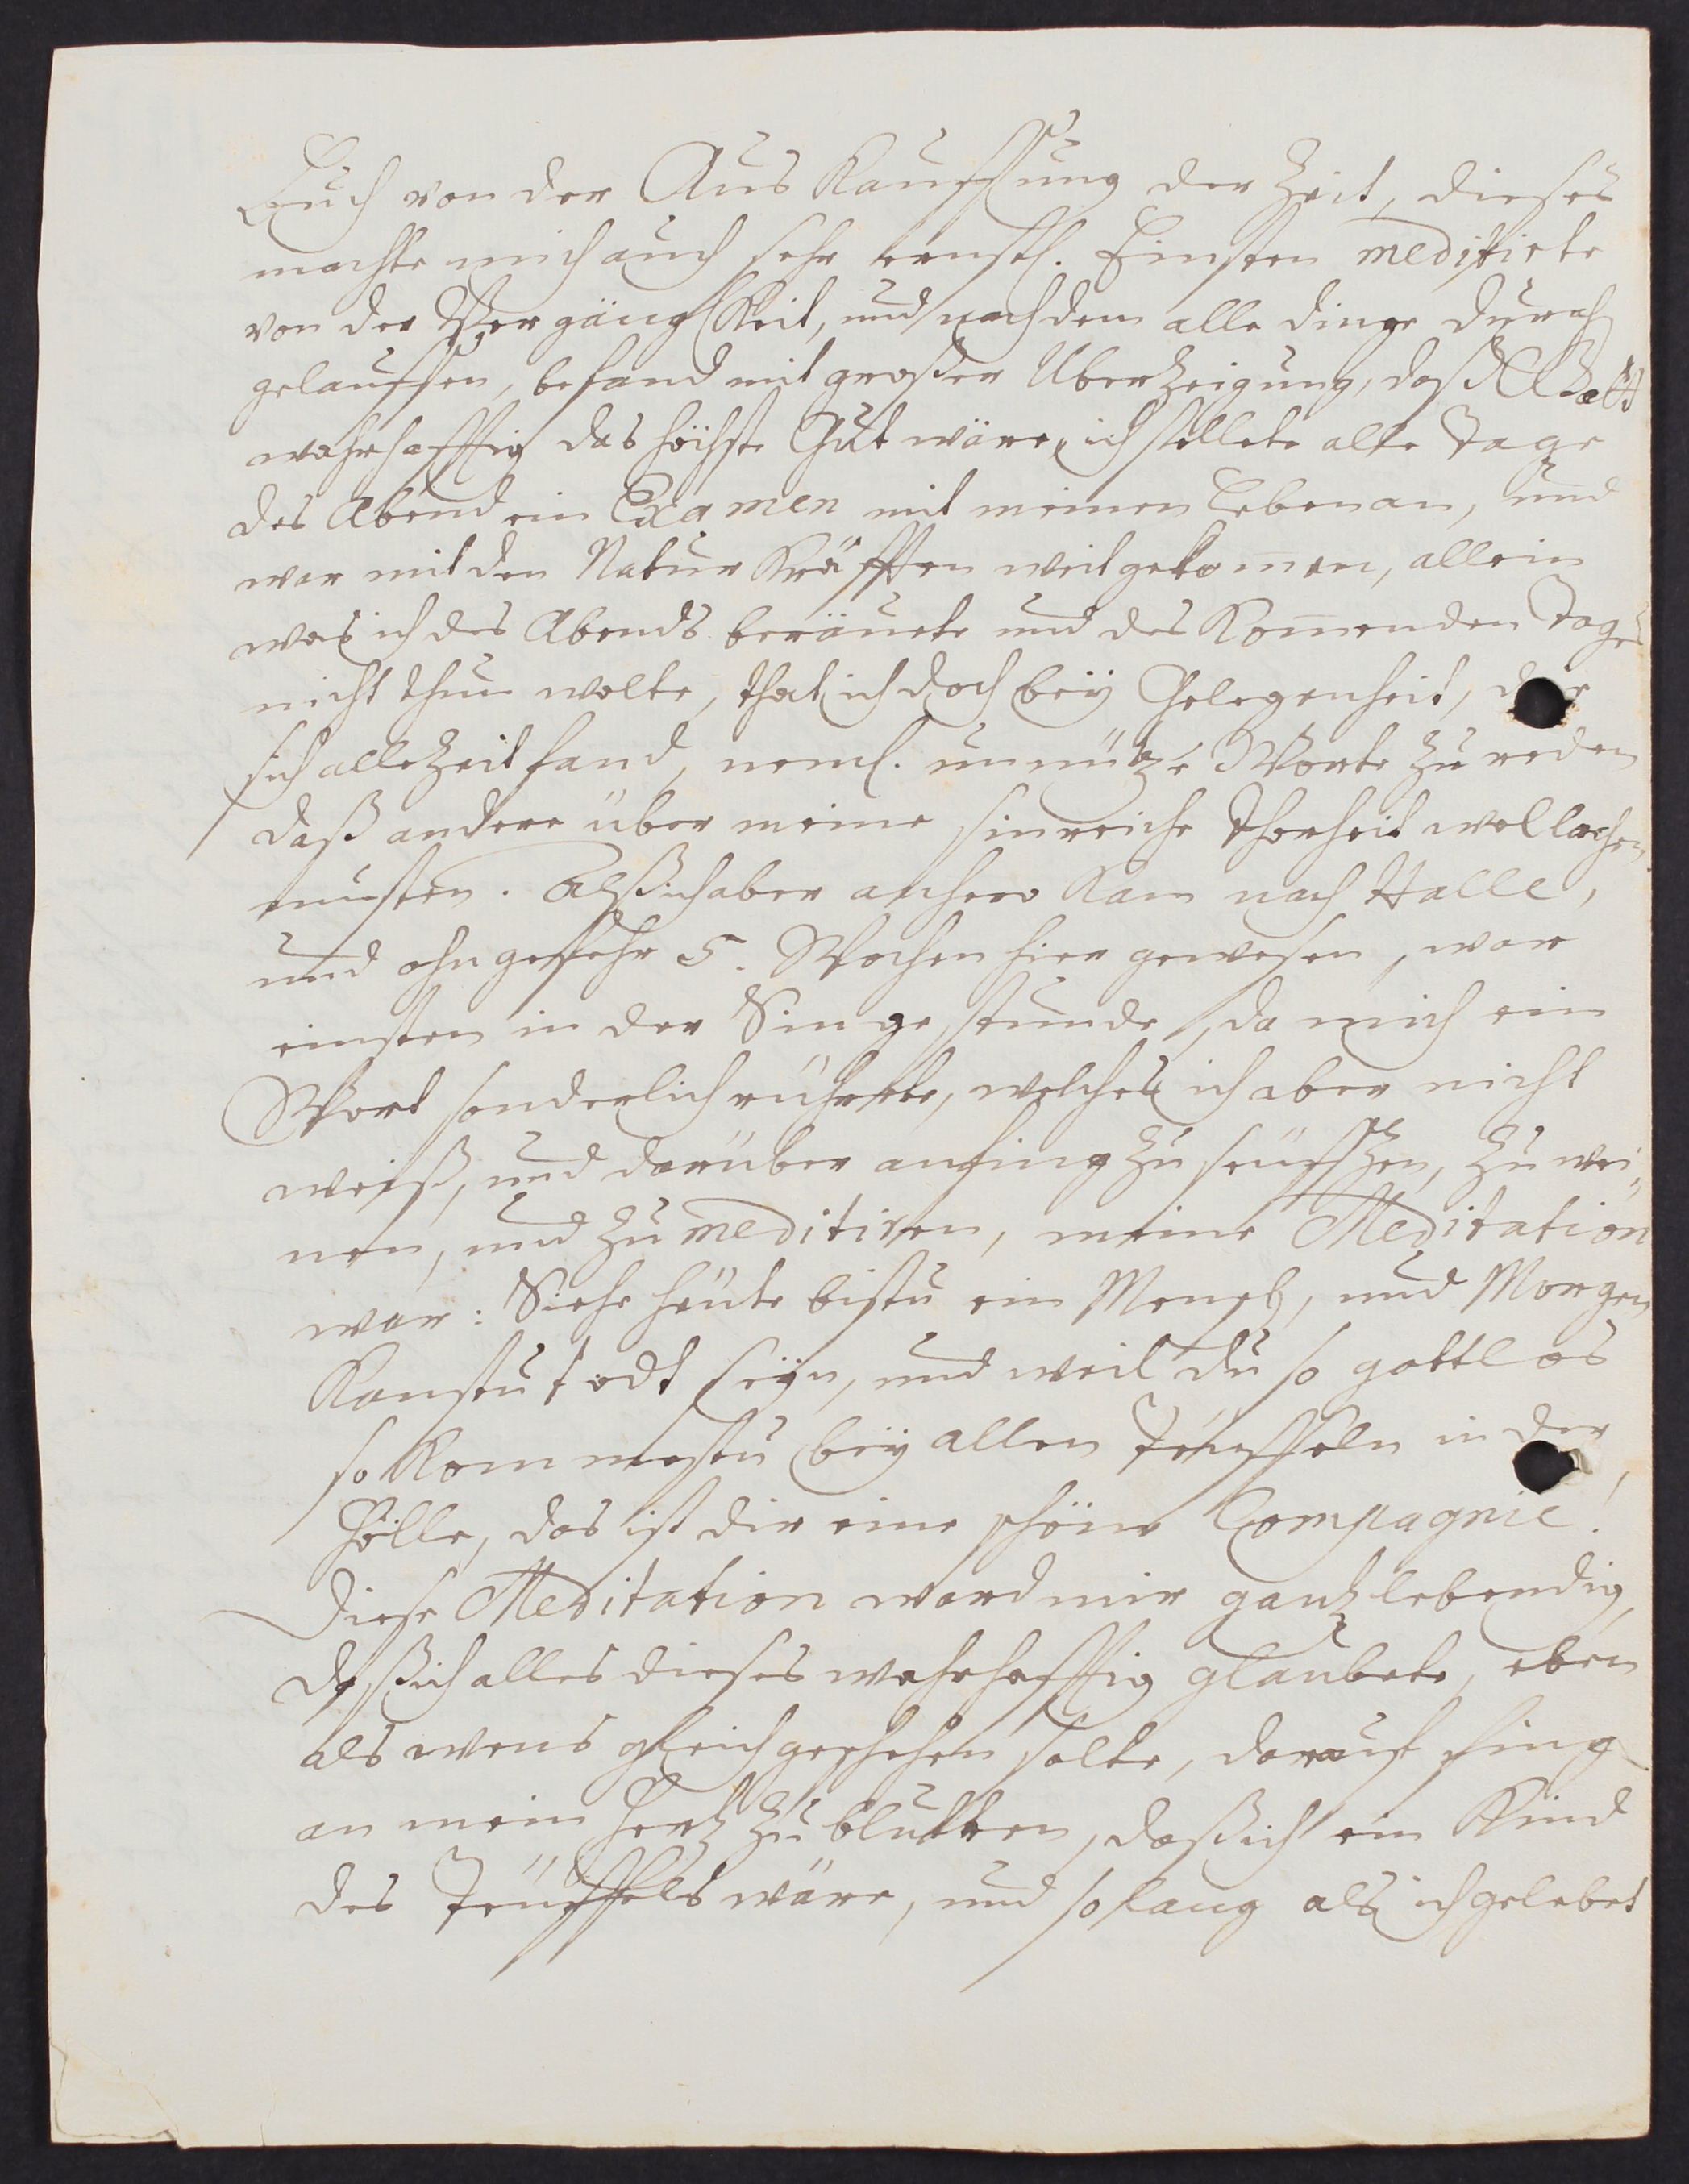 Buch von der Aus Kauffung der Zeit, dieses
machte mich auch sehr ernstl. Einsten meditirte
von der Vergänglkeit, und nach dem alle dinge durch
gelauffen, befand mit großer Uberzeigung, daß Gott
wahrhafftig das höchste Gut wäre, ich stellete alle Tage
des Abend ein Examen mit meinen Leben an, und
war mit den Natur Kräfften weit gekom̄en, allein
was ich des Abends beräuete und des Kom̄enden Tages
nicht thun wolte, that ich doch beÿ Gelegenheit, der
sich alle Zeit fand, neml. unnütze Worte zu reden
daß andere über meine sinreiche Thorheit wol lachen
musten. Alß ich aber anhero Kam nach Halle,
und ohngefehr 5. Wochen hier gewesen, war
einsten in der Singe stunde, da mich ein
Wort sonderlich rührete, welches ich aber nicht
weiß, und darüber anfing zu seüfftzen, zu wei„
nen, und zu meditiren, meine Meditation
war: Siehe heüte bistu ein Mensch, und Morgen
Kanstu todt seÿn, und weil du so gottlos
so Kommestu beÿ allen Teüffeln in der
Hölle, das ist dir eine schöne Compagnie!
Diese Meditation ward mir gantz lebendig,
daß ich alles dieses wahrhafftig glaubete, eben
als wens gleich geschehen solte, darauf fing
an mein Hertz zu blutten, daß ich ein Kind
des Teüffels wäre, und so lang als ich gelebet